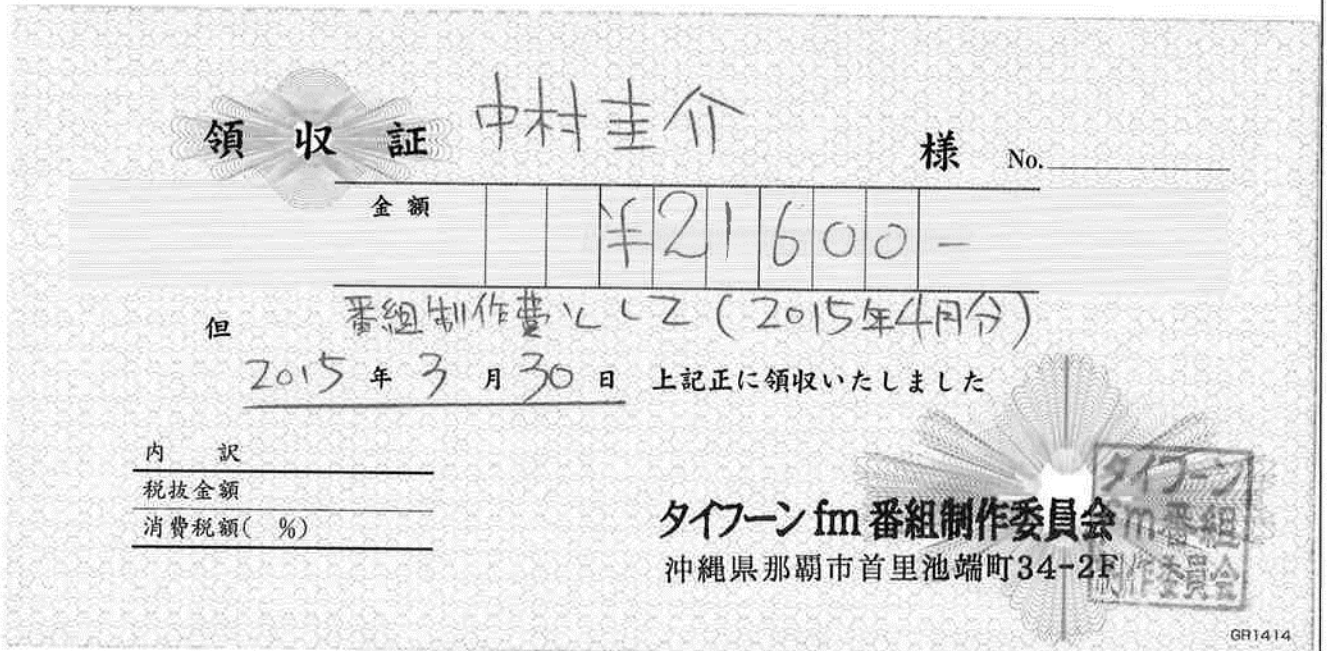 領収証 中村圭介 様 No.
金額 ¥21600-
但 番組制作費として(2015年4月分)
2015年3月30日 上記正に領収いたしました
内訳
税抜金額
消費税額( %)
タイフーンfm番組制作委員会
沖縄県那覇市首里池端町34-2F
タイフーン
fm番組
制作委員会
GR1414